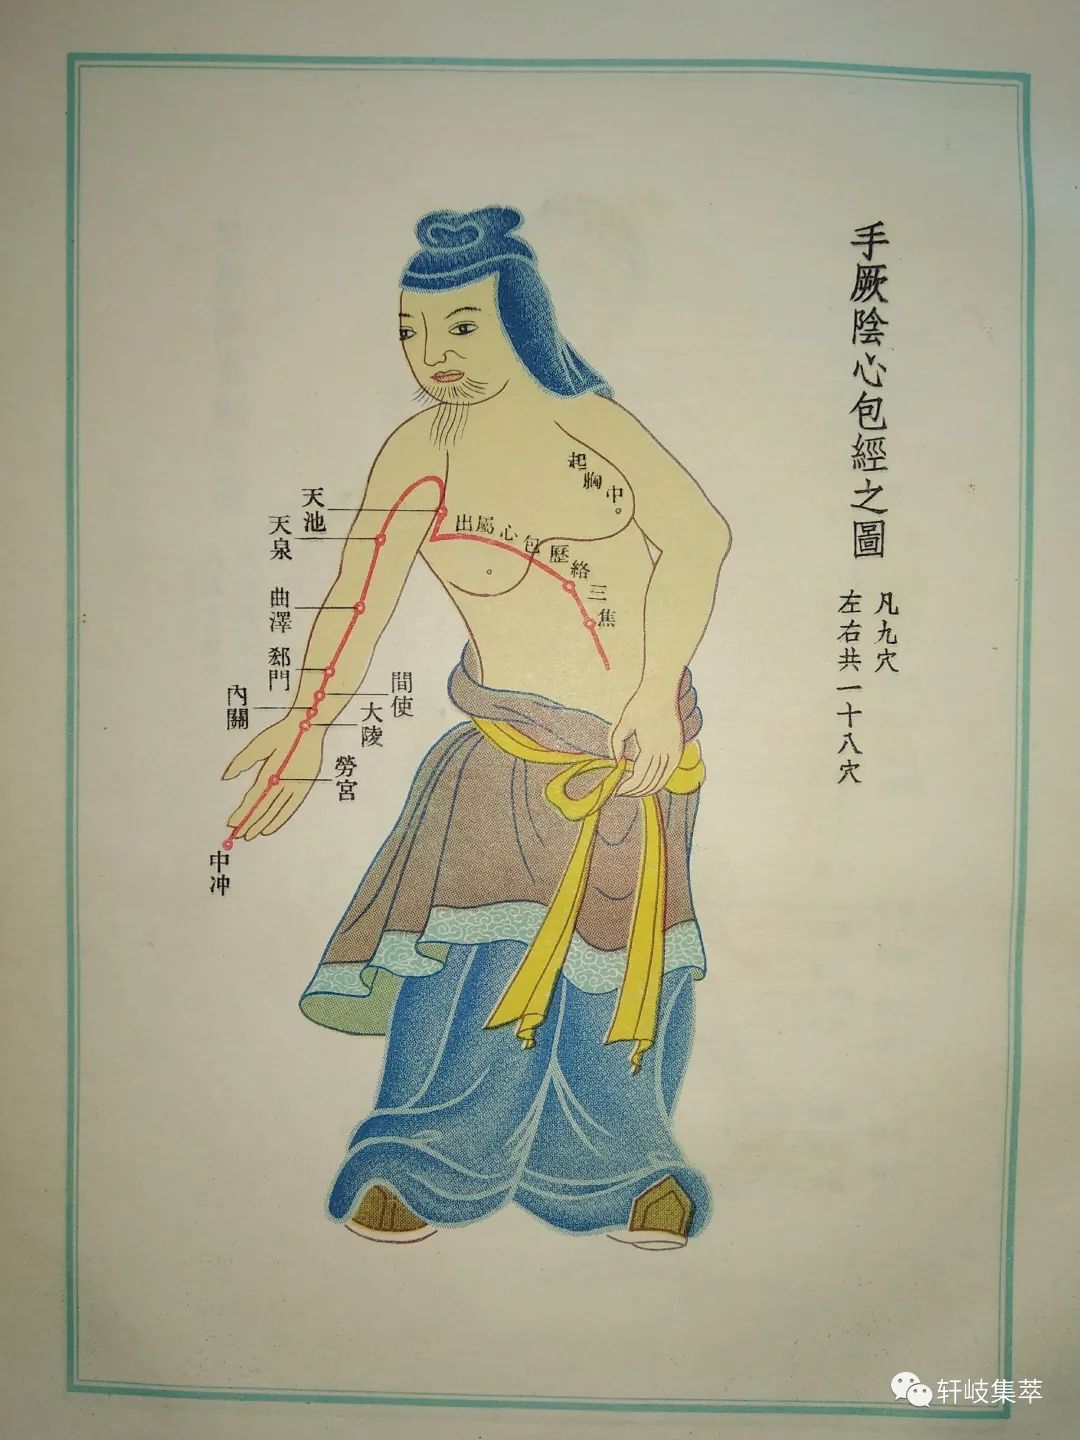 手厥陰心包經之圖
凡九穴
左右共一十八穴
起胸中
出屬心包歷絡三焦
天池
天泉
曲澤
郄門
間使
內關
大陵
勞宮
中冲
轩岐集萃